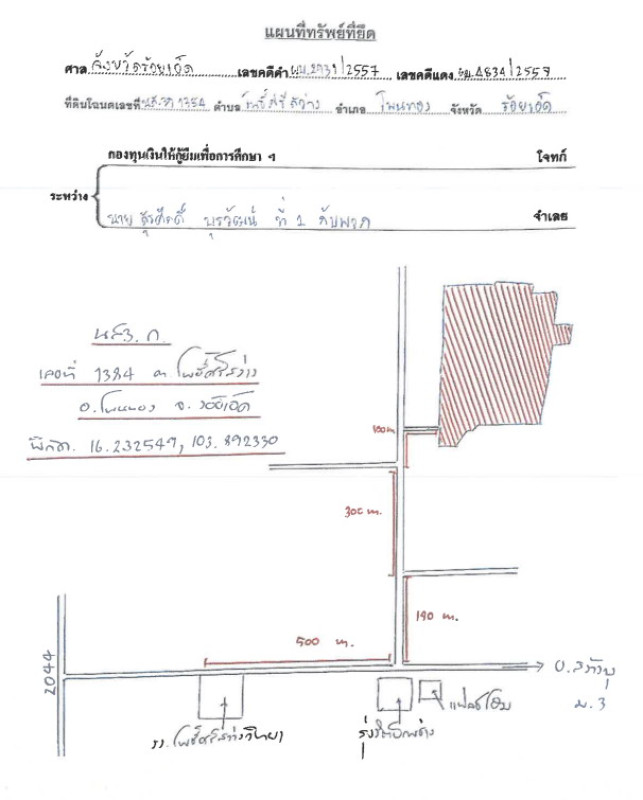 แผนที่ทรัพย์ที่ยึด
ศาล จังหวัดร้อยเอ็ด เลขคดีดำ ผบ. /2557 เลขคดีแดง ผบ.4834/2557
ที่ดินโฉนดเลขที่ ตำบล โพธิ์ศรีสว่าง อำเภอ โพนทอง จังหวัด ร้อยเอ็ด
กองทุนเงินให้กู้ยืมเพื่อการศึกษา ฯ โจทก์
ระหว่าง
นาย สุรศักดิ์ ที่ 1 กับพวก จำเลย
นส3 ก.
เลขที่ 1384 ต. โพธิ์ศรีสว่าง
อ.โพนทอง จ.ร้อยเอ็ด
พิกัด. 16.232549, 103.892330
100 m.
300 m.
190 m.
500 m.
2044
ม.3
รร. โพธิ์ศรีสว่างวิทยา